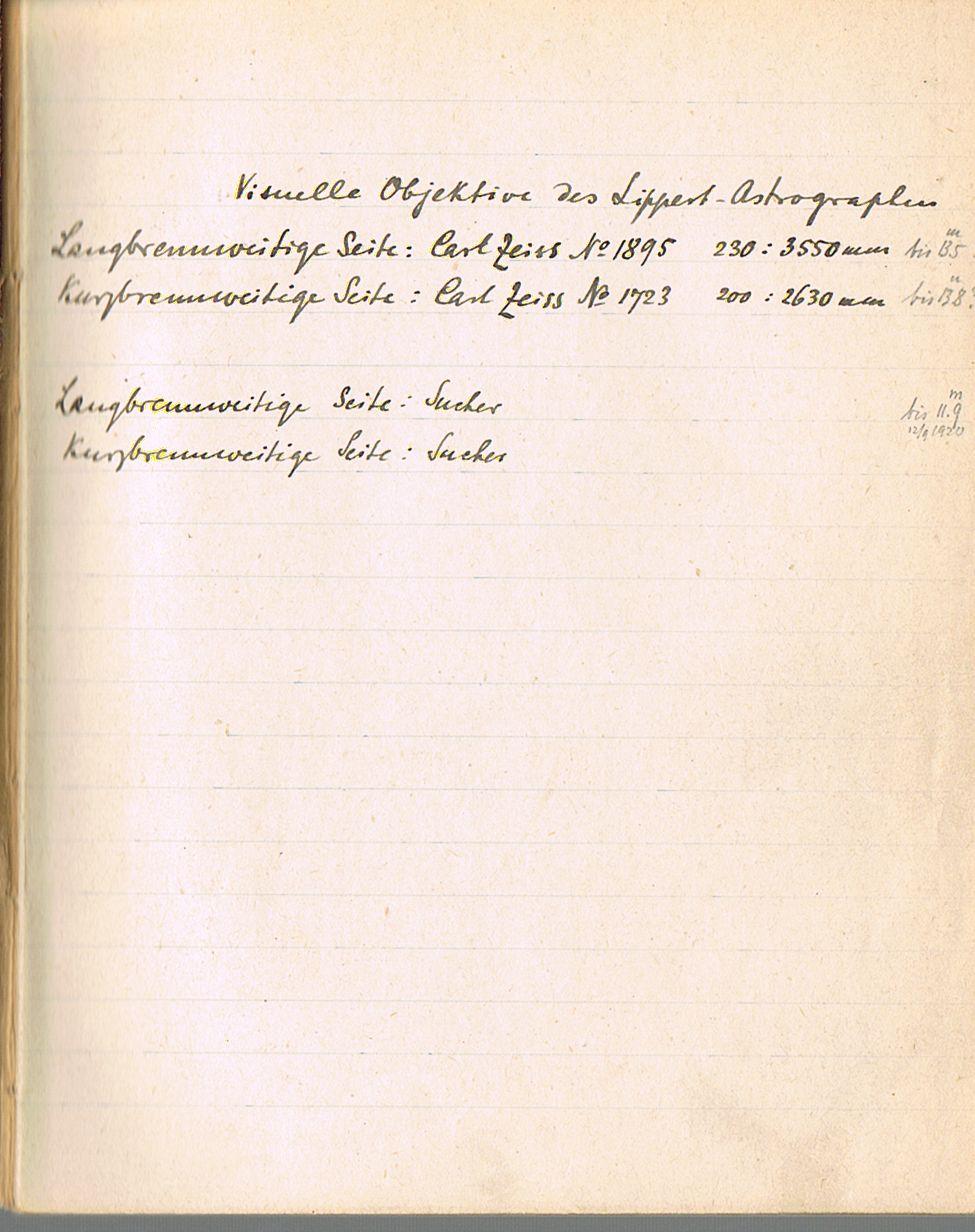 Visuelle Objektive des Lippert-Astrographen
Langbrennweitige Seite: Carl Zeiss No 1895 230 : 3550 mm bis 13.5m
Kurzbrennweitige Seite: Carl Zeiss No 1723 200 : 2630 mm bis 13.8m
Langbrennweitige Seite: Sucher bis 11.9m
1920
Kurzbrennweitige Seite: Sucher